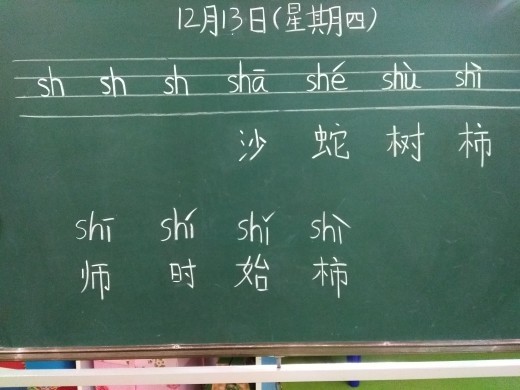 12月13日(星期四)
sh sh sh shā shé shù shì
沙 蛇 树 柿
shī shí shǐ shì
师 时 始 柿